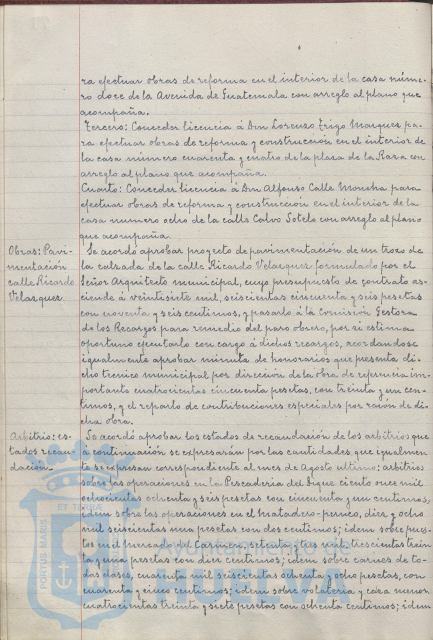 ra efectuar obras de reforma en el interior de la casa núme-
ro doce de la Avenida de Guatemala con arreglo al plano que
acompaña.
Tercero: Conceder licencia á Don Lorenzo Trigo Marques pa-
ra efectuar obras de reforma y construccion en el interior de
la casa número cuarenta y cuatro de la plaza de la Rara con
arreglo al plano que acompaña.
Cuarto: Conceder licencia á Don Alfonso Calle Moncha para
efectuar obras de reforma y construcción en el interior de la
casa numero ocho de la calle Calvo Sotelo con arreglo al plano
que acompaña.
Obras: Pavi-
mentación
calle Ricardo
Velazquez
Se acordó aprobar proyecto de pavimentación de un trozo de
la calzada de la calle Ricardo Velazquez formulado por el
Señor Arquitecto municipal, cuyo presupuesto de contrato as-
ciende á veintisiete mil, seiscientas cincuenta y seis pesetas
con noventa y seis centimos, y pasarlo á la Comisión Gestora
de los Recargos para remedio del paro obrero, por si estima
oportuno ejecutarlo con cargo á dichos recargos, acordandose
igualmente aprobar minuta de honorarios que presenta di-
cho tecnico municipal por dirección de la obra de referencia im-
portante cuatrocientas cincuenta pesetas, con treinta y un cen-
timos, y el reparto de contribuciones especiales por razon de di-
cha obra.
Arbitrio: es-
tados recau-
dación.
Se acordó aprobar los estados de recaudación de los arbitrios que
á continuación se expresarán por las cantidades que igualmen-
te se expresan correspondiente al mes de Agosto ultimo: arbitrios
sobre las operaciones en la Pescaderia del Dique ciento once mil
ochocientas ochenta y seis pesetas con cincuenta y un centimos,
idem sobre las operaciones en el matadero-perneo, diez y ocho
mil seiscientas una pesetas con dos centimos; idem sobre pues-
tos en el mercado del Carmen setenta y tres mil trescientas trein-
ta y una pesetas con diez centimos; idem sobre carnes de to-
das clases, cuarenta mil seiscientas ochenta y ocho pesetas, con
cuarenta y cinco centimos; idem sobre volateria y caza menor
cuatrocientas treinta y siete pesetas con ochenta centimos; idem
PORTUS MARIS
Ayuntamiento de
HUELVA